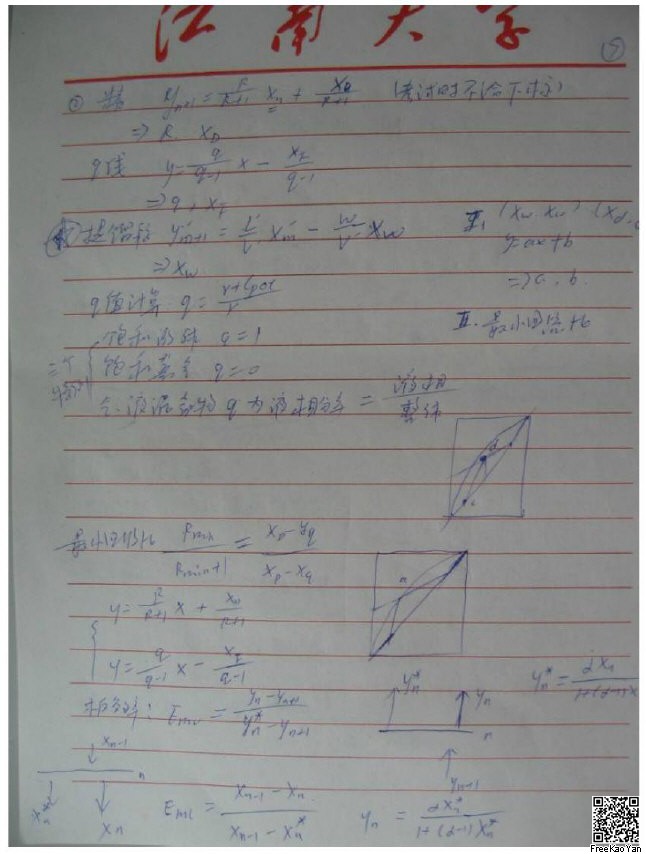 江南大学
⑤
② 精 y_{n+1} = \frac{R}{R+1} x_n + \frac{x_D}{R+1} (考试时不给下标)
⇒ R x_D
q线 y = \frac{q}{q-1} x - \frac{x_F}{q-1}
⇒ q, x_F
提馏段 y'_{m+1} = \frac{L'}{V'} x'_m - \frac{W}{V'} x_W
⇒ x_W
I. (x_W, x_W) (x_d,
y = ax + b
⇒ a, b.
q值计算 q =
饱和液体 q = 1
饱和蒸气 q = 0
气、液混合物 q 为液相分率 = \frac{液相}{整体}
II. 最小回流比
d
c
最小回流比 \frac{R_{min}}{R_{min}+1} = \frac{x_D - y_q}{x_D - x_q}
y = \frac{R}{R+1} x + \frac{x_D}{R+1}
y = \frac{q}{q-1} x - \frac{x_F}{q-1}
a
板效率: E_{mv} = \frac{y_n - y_{n+1}}{y_n^* - y_{n+1}}
y_n^* y_n n y_{n+1}
y_n^* = \frac{αx_n}{1+(α-1)x
x_{n-1} n x_n^* x_n
E_{ml} = \frac{x_{n-1} - x_n}{x_{n-1} - x_n^*}
y_n = \frac{αx_n^*}{1+(α-1)x_n^*}
FreeKaoYan